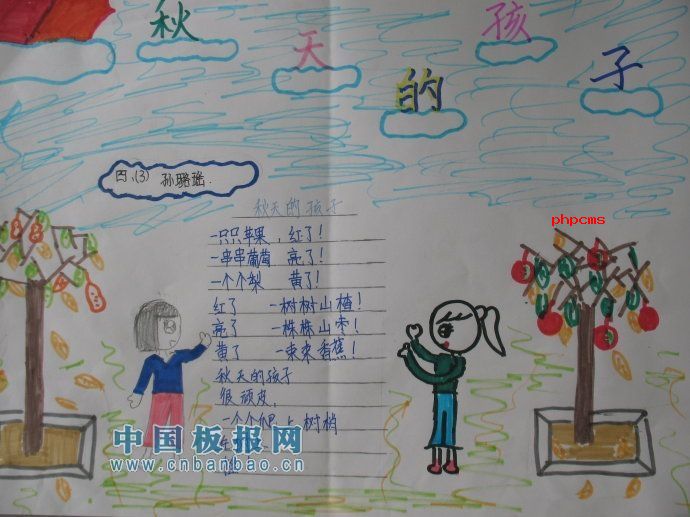 秋天的孩子
四、(3) 孙璐瑶.
phpcms
秋天的孩子
一只只苹果，红了！
一串串葡萄 亮了！
一个个梨 黄了！
红了 一树树山楂！
亮了 一株株山枣！
黄了 一束束香蕉！
秋天的孩子
很顽皮,
一个个爬上树梢
中国板报网
www.cnbanbao.cn